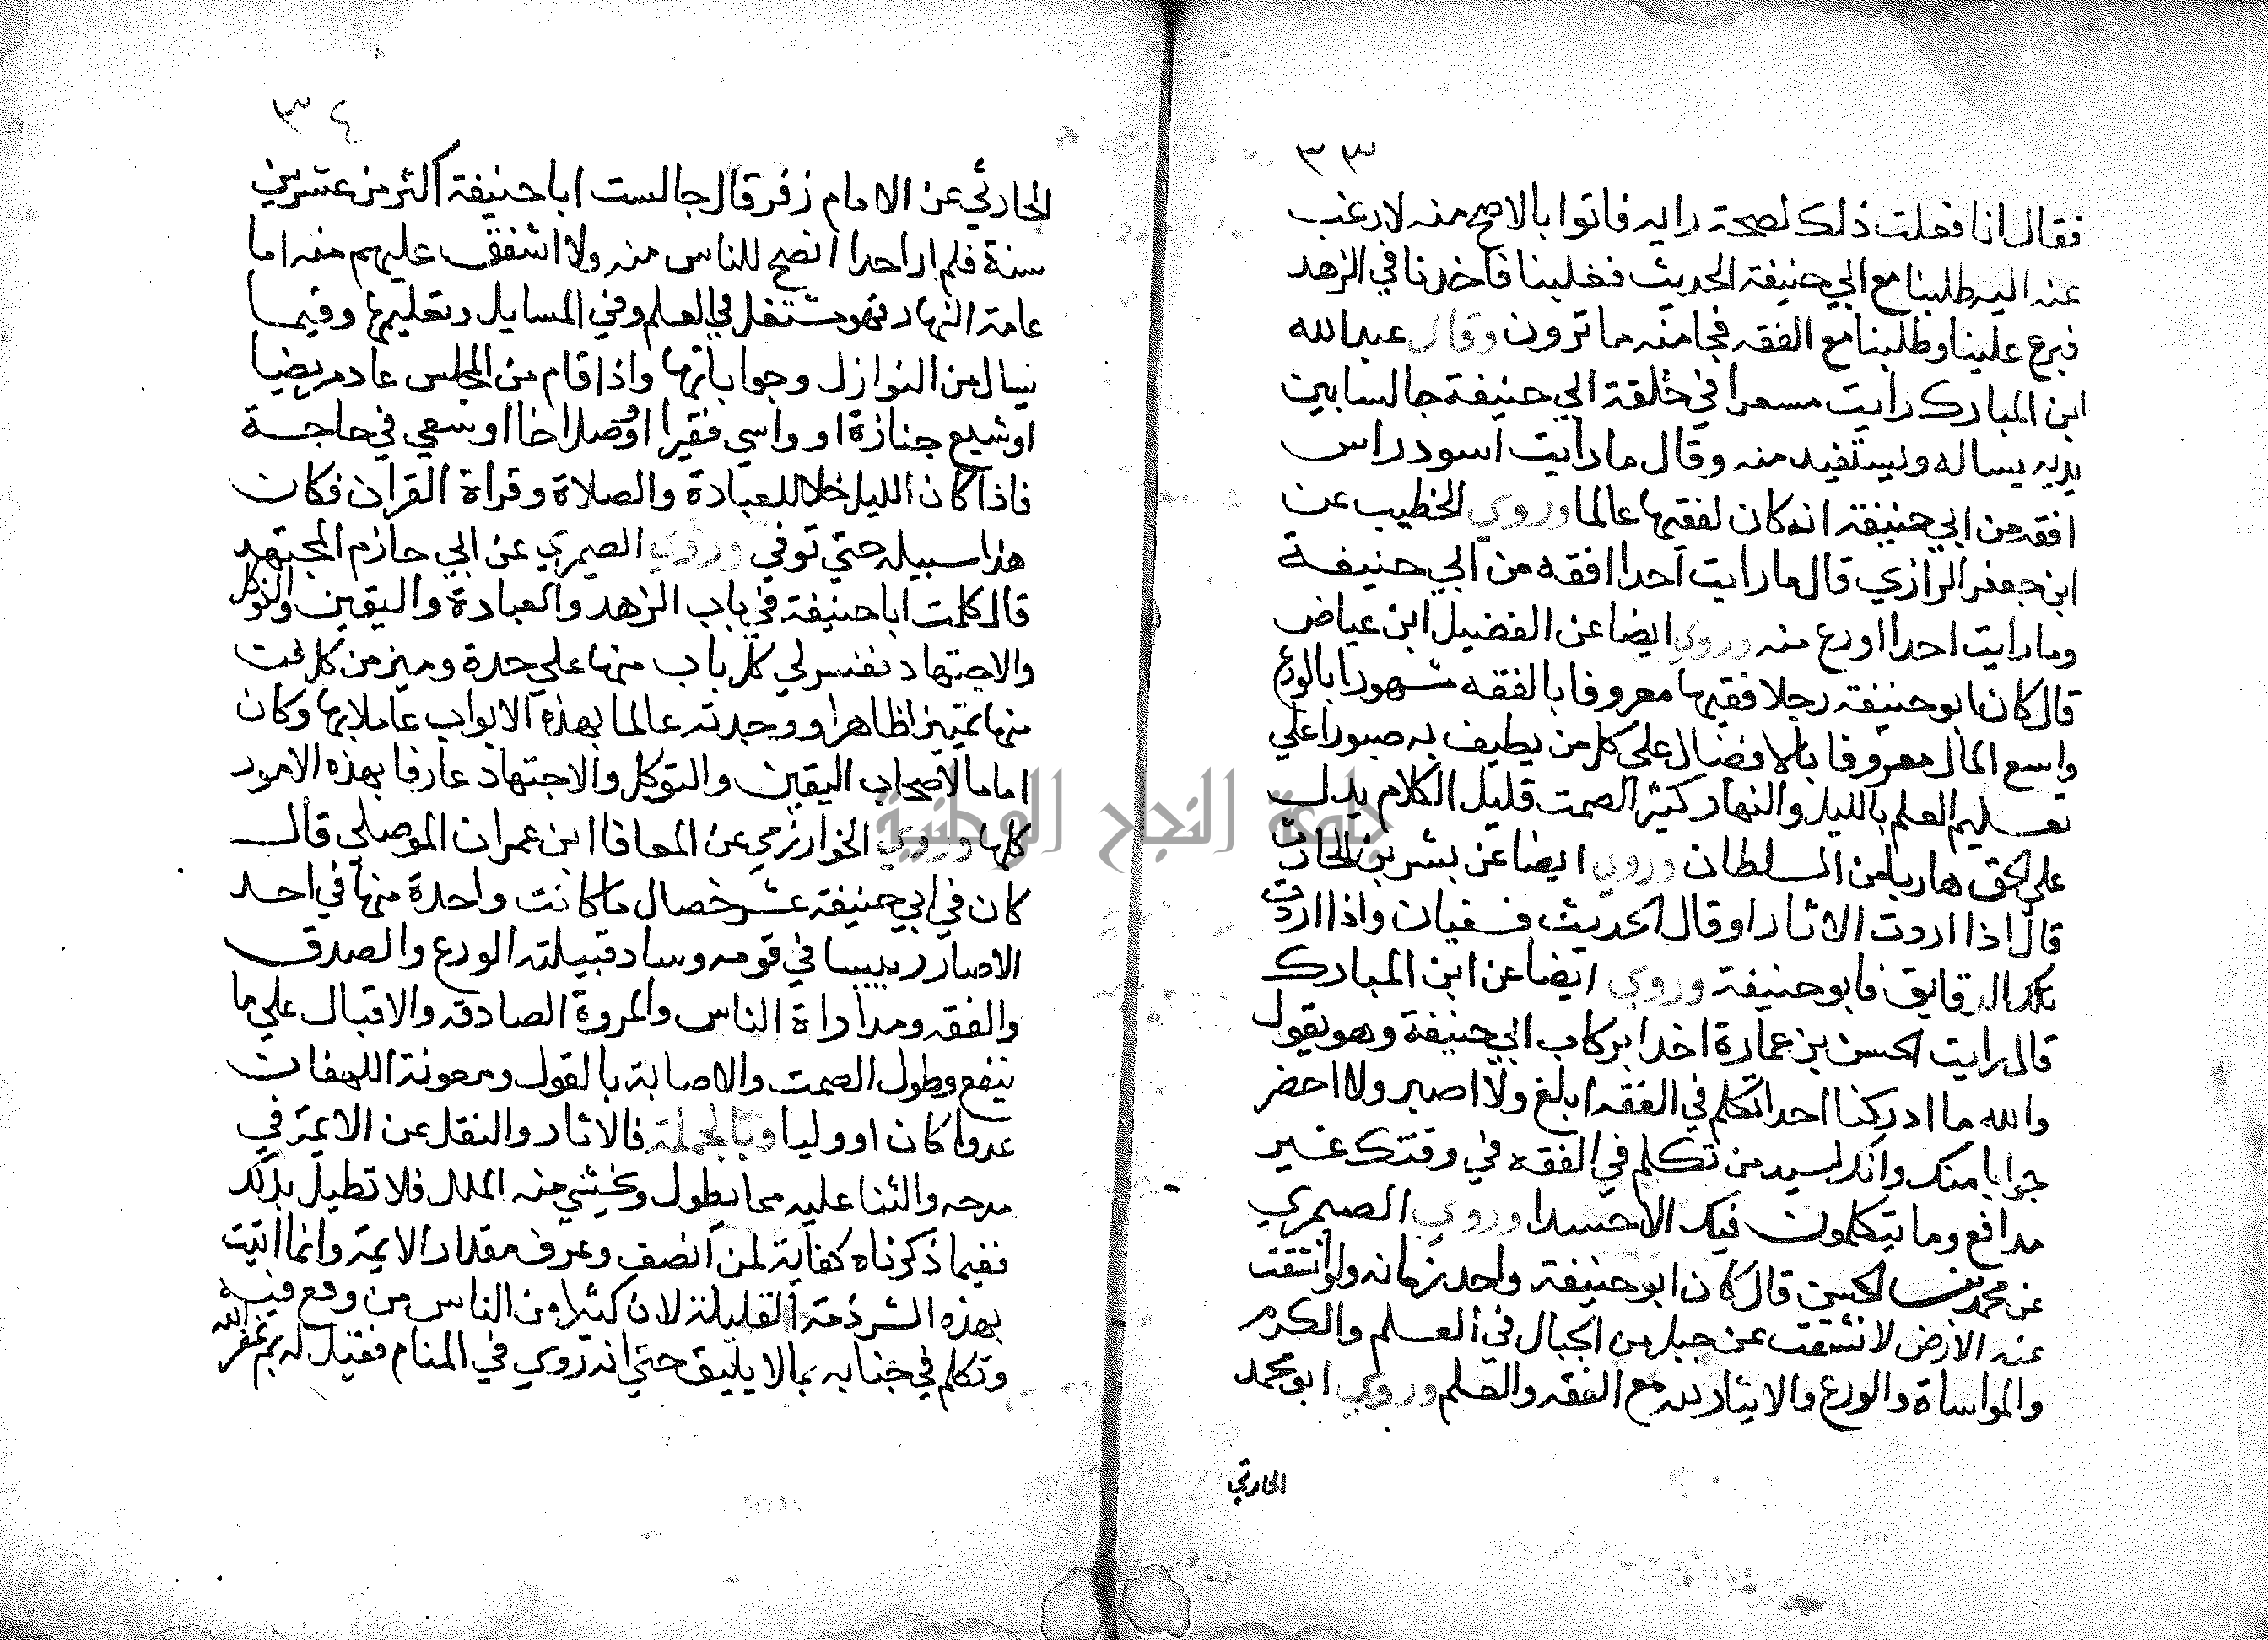 ٣٣
فقال انا فعلت ذلك لصحة رايه فاتوا بالاصح منه لارغب
عنه اليه طلبنا مع ابي حنيفة الحديث فغلبنا فاخذنا في الزهد
فبرع علينا وطلبنا مع الفقه فجا منه ما ترون وقال عبدالله
ابن المبارك رايت مسعرا في حلقة ابي حنيفة جالسا بين
يديه يساله ويستفيد منه وقال ما رايت اسود راس
افقه من ابي حنيفة انه كان لفقيها عالما وروي الخطيب عن
ابن جعفر الرازي قال ما رايت احدا افقه من ابي حنيفة
وما رايت احدا اورع منه وروي ايضا عن الفضيل ابن عياض
قال كان ابو حنيفة رجلا فقيها معروفا بالفقه مشهورا بالورع
واسع المال معروفا بالافضال علي كل من يطيف به صبورا علي
تعليم العلم بالليل والنهار كثير الصمت قليل الكلام يدل
علي الحق هاربا من السلطان وروي ايضا عن بشر بن الحارث
قال اذا اردت الاثار او قال الحديث فسفيان واذا اردت
تلك الدقايق فابو حنيفة وروي ايضا عن ابن المبارك
قال رايت الحسن بن عمارة اخذا بركاب ابي حنيفة وهو يقول
والله ما ادركنا احدا تكلم في الفقه ابلغ ولا اصبر ولا احضر
جوابا منك وانك لسيد من تكلم في الفقه في وقتك غير
مدافع وما يتكلمون فيك الا حسدا وروي الصيمري
عن محمد الحسين قال كان ابو حنيفة واحد زمانه ولو انشقت
عنه الارض لانشقت عن جبل من الجبال في العلم والكرم
والمواساة والورع والايثار لله مع الفقه والعلم وروي ابو محمد
الحارثي
٣٤
الحارثي عن الامام زفر قال جالست ابا حنيفة اكثر من عشرين
سنة فلم ار احدا انصح للناس منه ولا اشفق عليهم منه اما
عامة النهار فهو مشتغل في العلم وفي المسايل وتعليمها وفيما
يسال من النوازل وجواباتها واذا قام من المجلس عاد مريضا
او شيع جنازة او واسي فقيرا او وصل اخا او سعي في حاجة
فاذا كان الليل خلا للعبادة والصلاة وقراة القران فكان
هذا سبيله حتي توفي وروي الصيمري عن ابي حازم المجتهد
قال كلمت ابا حنيفة في باب الزهد والعبادة واليقين والتوكل
والاجتهاد ففسر لي كل باب منها علي حدة وميز من كل
منها تمييزا ظاهرا ووجدته عالما بهذه الابواب عاملا بها وكان
اماما لاصحاب اليقين والتوكل والاجتهاد عارفا بهذه الامور
كلها وروي الخوارزمي عن المعافا ابن عمران الموصلي قال
كان في ابي حنيفة عشر خصال ما كانت واحدة منها في احد
الا صار رييسا في قومه وساد قبيلته الورع والصدق
والفقه ومداراة الناس والمروة الصادقة والاقبال علي ما
ينفع وطول الصمت والاصابة بالقول ومعونة اللهفات
عدوا كان او وليا وبالجملة فالاثار والنقل عن الايمة في
مدحه والثنا عليه مما يطول ويخشي منه الملل فلا تطيل بذلك
ففيما ذكرناه كفاية لمن انصف وعرف مقدار الايمة وانما اتيت
بهذه الشرذمة القليلة لان كثيرا من الناس من وقع فيه
وتكلم في جنابه بما لا يليق حتي انه روي في المنام فقيل له بم غفر الله